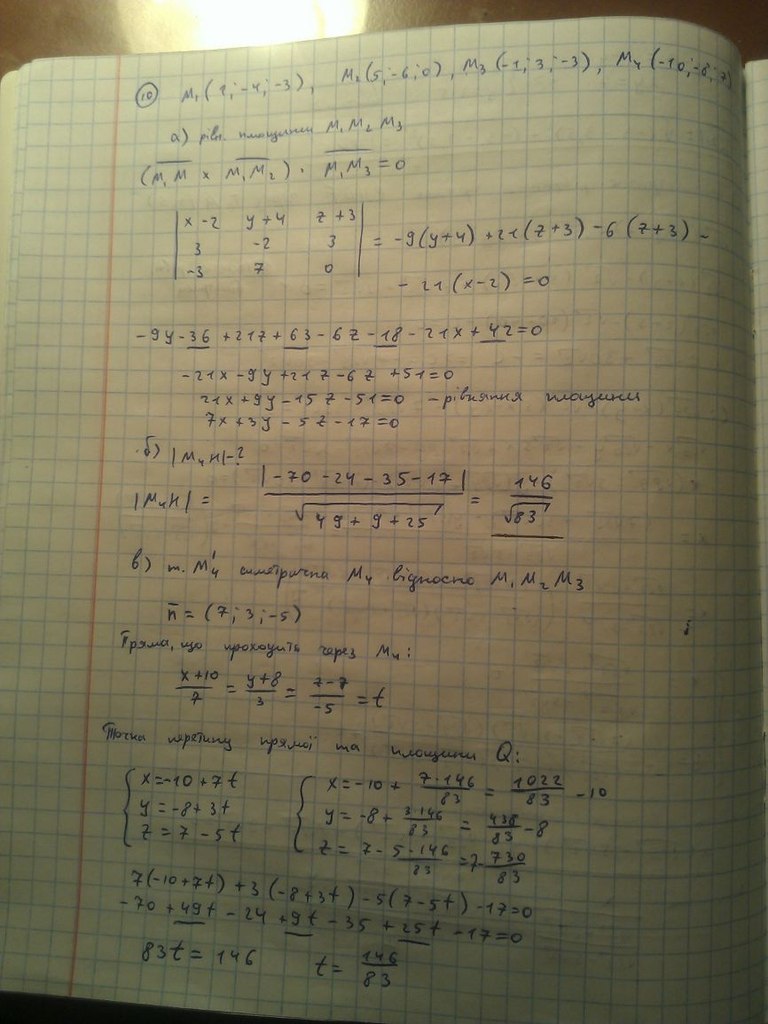 10 M₁(2;-4;-3), M₂(5;-6;0), M₃(-1;3;-3), M₄(-10;-8;7)
а) рівн. площини M₁M₂M₃
(M₁M × M₁M₂) · M₁M₃ = 0
| x-2 y+4 z+3 |
| 3 -2 3 | = -9(y+4) +21(z+3) -6(z+3) -
| -3 7 0 |
- 21(x-2) = 0
-9y-36 +21z+63-6z-18-21x+42=0
-21x-9y+21z-6z+51=0
21x+9y-15z-51=0 - рівняння площини
7x+3y-5z-17=0
б) |M₄H|-?
|M₄H| = |-70-24-35-17| / √(49+9+25) = 146/√83
в) т. M₄' симетрична M₄ відносно M₁M₂M₃
n = (7;3;-5)
Пряма, що проходить через M₄:
(x+10)/7 = (y+8)/3 = (z-7)/-5 = t
Точка перетину прямої та площини Q:
x=-10+7t x=-10+ 7·146/83 = 1022/83 -10
y=-8+3t y=-8+ 3·146/83 = 438/83 -8
z=7-5t z=7- 5·146/83 =7- 730/83
7(-10+7t)+3(-8+3t)-5(7-5t)-17=0
-70+49t-24+9t-35+25t-17=0
83t=146 t= 146/83